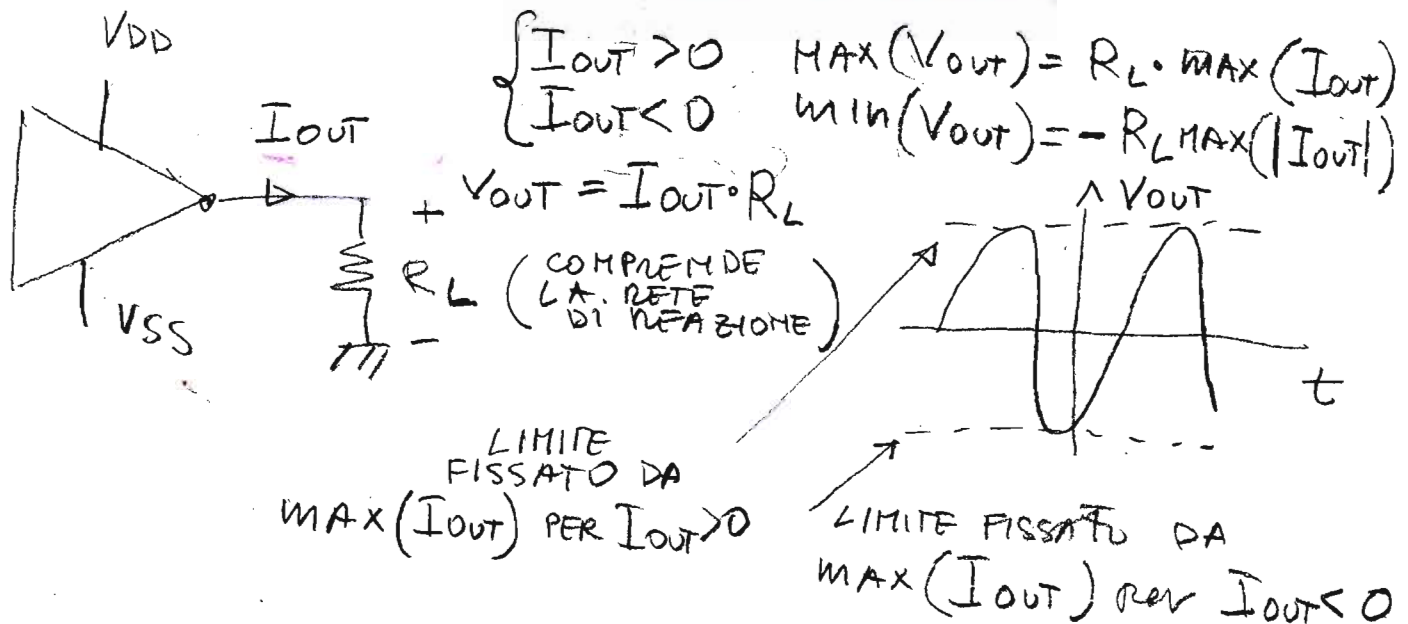 VDD
IOUT
VSS
IOUT > 0
IOUT < 0
MAX(VOUT) = RL · MAX(IOUT)
MIN(VOUT) = - RL MAX(|IOUT|)
+ VOUT = IOUT · RL
RL (COMPRENDE
LA RETE
DI REAZIONE)
-
VOUT
t
LIMITE
FISSATO DA
MAX(IOUT) PER IOUT>0
LIMITE FISSATO DA
MAX(IOUT) per IOUT<0